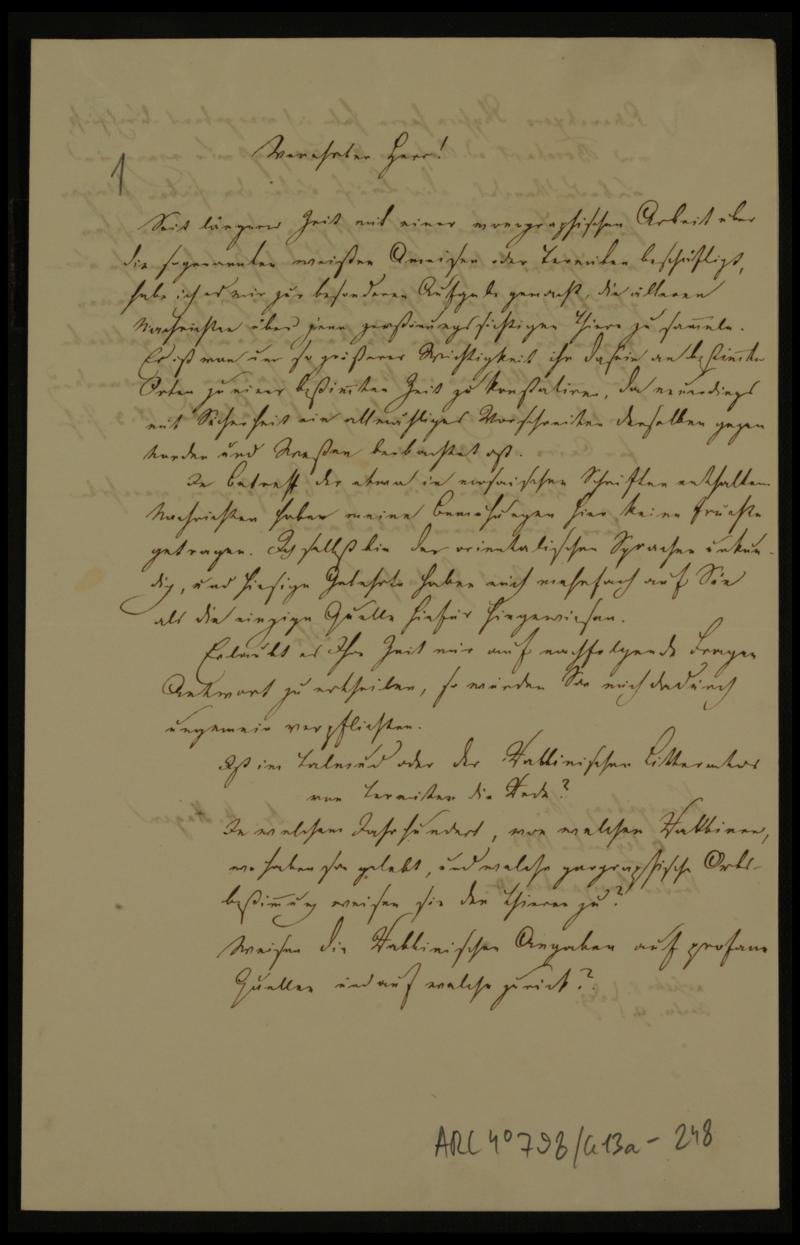 1
Verehrter Herr!
Seit längerer Zeit mit einer monographischen Arbeit über
die sogenannten weißen Ameisen oder Termiten beschäftigt,
habe ich es mir zur besonderen Aufgabe gemacht, die älteren
Nachrichten über jene zerstörungssüchtigen Thiere zu sam̄eln.
Es ist um so größerer Wichtigkeit ihr Dasein an bestim̄ten
Orten zu einer bestim̄ten Zeit zu konstatiren, da neuerdings
mit Sicherheit ein allmähliges Vorschreiten derselben gegen
Norden und Westen beobachtet ist.
In Betreff der etwa in mosaischen Schriften enthaltenen
Nachrichten haben meine Bemühungen hier keine Früchte
getragen. Ich selbst bin der orientalischen Sprachen unkun-
dig, und hiesige Gelehrte haben mich mehrfach auf Sie
als die einzige Quelle hiefür hingewiesen.
Erlaubt es Ihre Zeit mir auf nachfolgende Fragen
Antwort zu ertheilen, so würden Sie mich dadurch
ungemein verpflichten.
Ist im Talmud oder der Rabbinischen Litteratur
von Termiten die Rede?
In welchem Jahrhundert, von welchen Rabbinen,
wo haben sie gelebt, und welche geographische Orts-
bestim̄ung weisen sie den Thieren zu?
Weisen die Rabbinischen Angaben auf profane
Quellen und auf welche zurück?
ARC 4° 792/G13a - 248